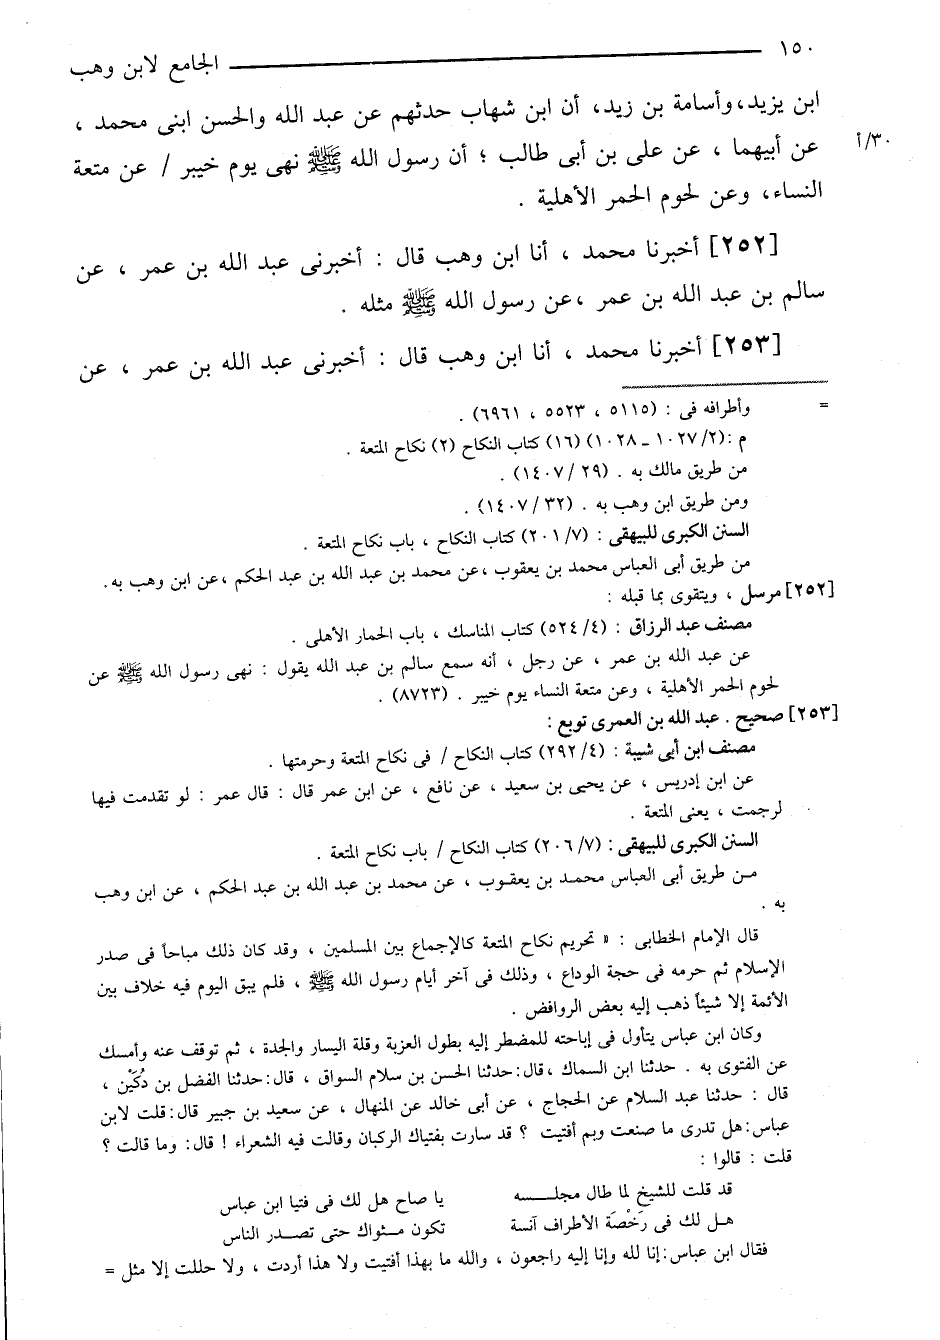 ١٥٠ الجامع لابن وهب
ابن يزيد، وأسامة بن زيد، أن ابن شهاب حدثهم عن عبد الله والحسن ابنى محمد ،
عن أبيهما ، عن على بن أبى طالب ؛ أن رسول الله ﷺ نهى يوم خيبر / عن متعة
٣٠/أ
النساء، وعن لحوم الحمر الأهلية .
[٢٥٢] أخبرنا محمد ، أنا ابن وهب قال : أخبرنى عبد الله بن عمر ، عن
سالم بن عبد الله بن عمر ،عن رسول الله ﷺ مثله .
[٢٥٣] أخبرنا محمد ، أنا ابن وهب قال : أخبرنى عبد الله بن عمر ، عن
= وأطرافه فى : (٥١١٥ ، ٥٥٢٣ ، ٦٩٦١) .
م :(١٠٢٧/٢ ـ ١٠٢٨) (١٦) كتاب النكاح (٢) نكاح المتعة .
من طريق مالك به . (٢٩ /١٤٠٧) .
ومن طريق ابن وهب به . (٣٢ /١٤٠٧) .
السنن الكبرى للبيهقى : (٢٠١/٧) كتاب النكاح ، باب نكاح المتعة .
من طريق أبى العباس محمد بن يعقوب ،عن محمد بن عبد الله بن عبد الحكم ،عن ابن وهب به.
[٢٥٢] مرسل ، ويتقوى بما قبله :
مصنف عبد الرزاق : (٥٢٤/٤) كتاب المناسك ، باب الحمار الأهلى .
عن عبد الله بن عمر ، عن رجل ، أنه سمع سالم بن عبد الله يقول : نهى رسول الله ﷺ عن
لحوم الحمر الأهلية ، وعن متعة النساء يوم خيبر . (٨٧٢٣) .
[٢٥٣] صحيح . عبد الله بن العمرى توبع :
مصنف ابن أبى شيبة : (٢٩٢/٤) كتاب النكاح / فى نكاح المتعة وحرمتها .
عن ابن إدريس ، عن يحيى بن سعيد ، عن نافع ، عن ابن عمر قال : قال عمر : لو تقدمت فيها
لرجمت ، يعنى المتعة .
السنن الكبرى للبيهقى : (٢٠٦/٧) كتاب النكاح / باب نكاح المتعة .
مـن طريق أبى العباس محمـد بن يعقـوب ، عن محمد بن عبد الله بن عبد الحكم ، عن ابن وهب
به .
قال الإمام الخطابى : « تحريم نكاح المتعة كالإجماع بين المسلمين ، وقد كان ذلك مباحاً فى صدر
الإسلام ثم حرمه فى حجة الوداع ، وذلك فى آخر أيام رسول الله ﷺ ، فلم يبق اليوم فيه خلاف بين
الأئمة إلا شيئاً ذهب إليه بعض الروافض .
وكان ابن عباس يتأول فى إباحته للمضطر إليه بطول العزبة وقلة اليسار والجدة ، ثم توقف عنه وأمسك
عن الفتوى به . حدثنا ابن السماك ،قال: حدثنا الحسن بن سلام السواق ، قال:حدثنا الفضل بن دُكَيْن ،
قال : حدثنا عبد السلام عن الحجاج ، عن أبى خالد عن المنهال ، عن سعيد بن جبير قال: قلت لابن
عباس: هل تدرى ما صنعت وبم أفتيت ؟ قد سارت بفتياك الركبان وقالت فيه الشعراء ! قال: وما قالت ؟
قلت : قالوا :
قد قلت للشيخ لما طال مجلـــسه يا صاح هل لك فى فتيا ابن عباس
هـل لك فى رَخْصَة الأطراف آنسة تكون مـثواك حتى تصـدر الناس
فقال ابن عباس: إنا لله وإنا إليه راجعون ، والله ما بهذا أفتيت ولا هذا أردت ، ولا حللت إلا مثل =